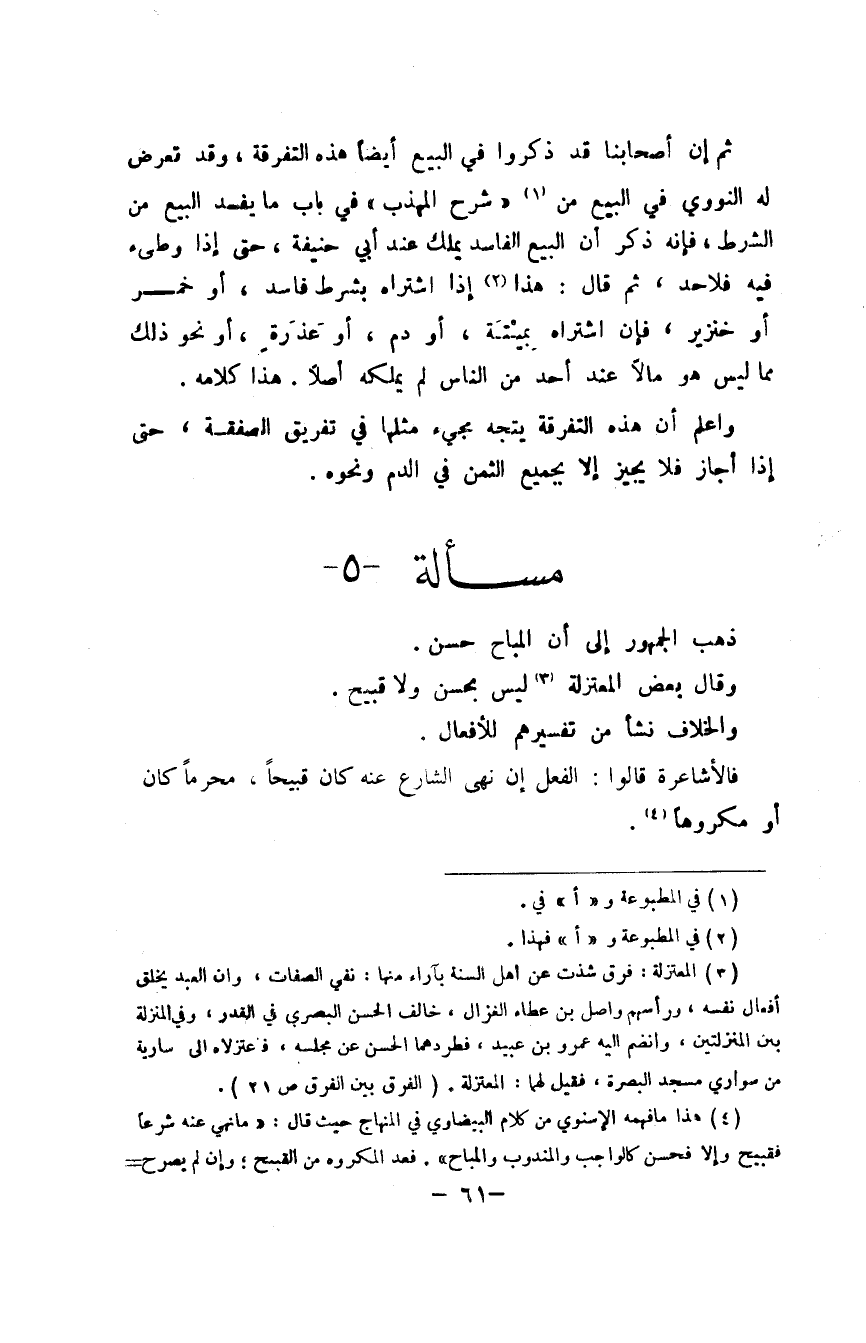 ثم إن أصحابنا قد ذكروا في البيع أيضاً هذه التفرقة ، وقد تعرض
له النووي في البيع من (١) « شرح المهذب » في باب ما يفسد البيع من
الشرط ، فإنه ذكر أن البيع الفاسد يملك عند أبي حنيفة ، حتى إذا وطىء
فيه فلاحد ، ثم قال : هذا (٢) إذا اشتراه بشرط فاسد ، أو خمـــر
أو خنزير ، فإن اشتراه بِمَيْتَة ، أو دم ، أو عَذَرةٍ ، أو نحو ذلك
مما ليس هو مالاً عند أحد من الناس لم يملكه أصلاً . هذا كلامه .
واعلم أن هذه التفرقة يتجه مجيء مثلها في تفريق الصفقــة ، حتى
إذا أجاز فلا يجيز إلا بجميع الثمن في الدم ونحوه .
مســـألة -٥-
ذهب الجمهور إلى أن المباح حسن .
وقال بعض المعتزلة (٣) ليس بحسن ولا قبيح .
والخلاف نشأ من تفسيرهم للأفعال .
فالأشاعرة قالوا : الفعل إن نهى الشارع عنه كان قبيحاً ، محرماً كان
أو مكروهاً (٤) .
(١) في المطبوعة و « أ » في .
(٢) في المطبوعة و « أ » فهذا .
(٣) المعتزلة : فرق شذت عن اهل السنة بآراء منها : نفي الصفات ، وان العبد يخلق
أفعال نفسه ، ورأسهم واصل بن عطاء الغزال ، خالف الحسن البصري في القدر ، وفي المنزلة
بين المنزلتين ، وانضم اليه عمرو بن عبيد ، فطردهما الحسن عن مجلسه ، فاعتزلاه الى سارية
من سواري مسجد البصرة ، فقيل لهما : المعتزلة . ( الفرق بين الفرق ص ٢١ ) .
(٤) هذا مافهمه الإسنوي من كلام البيضاوي في المنهاج حيث قال : « مانهي عنه شرعاً
فقبيح وإلا فحسن كالواجب والمندوب والمباح» . فعد المكروه من القبيح ؛ وإن لم يصرح==
— ٦١ —